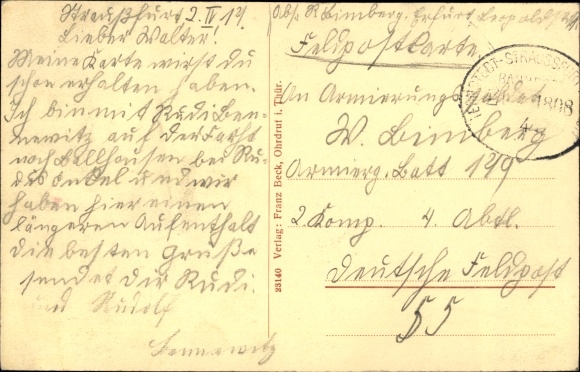 Straußfurt 2. IV 17.
Lieber Walter!
Meine Karte wirst du
schon erhalten haben.
Ich bin mit Rudi Ben-
newitz auf der Farht
nach Ballhausen bei Ru-
dis Onkel und wir
haben hier einen
längeren Aufenthalt
die besten Grüße
sendet dir Rudi.
und Rudolf
Bennewitz
23140 Verlag: Franz Beck, Ohrdruf i. Thür.
Abs. R. Bimberg. Erfurt, Leopoldst
Feldpostkarte.
STRAUSSFURT
1808
An Armierungssoldat
W. Bimberg
Armierg. Batt 149
2. Komp. 4. Abtl.
Deutsche Feldpost
55